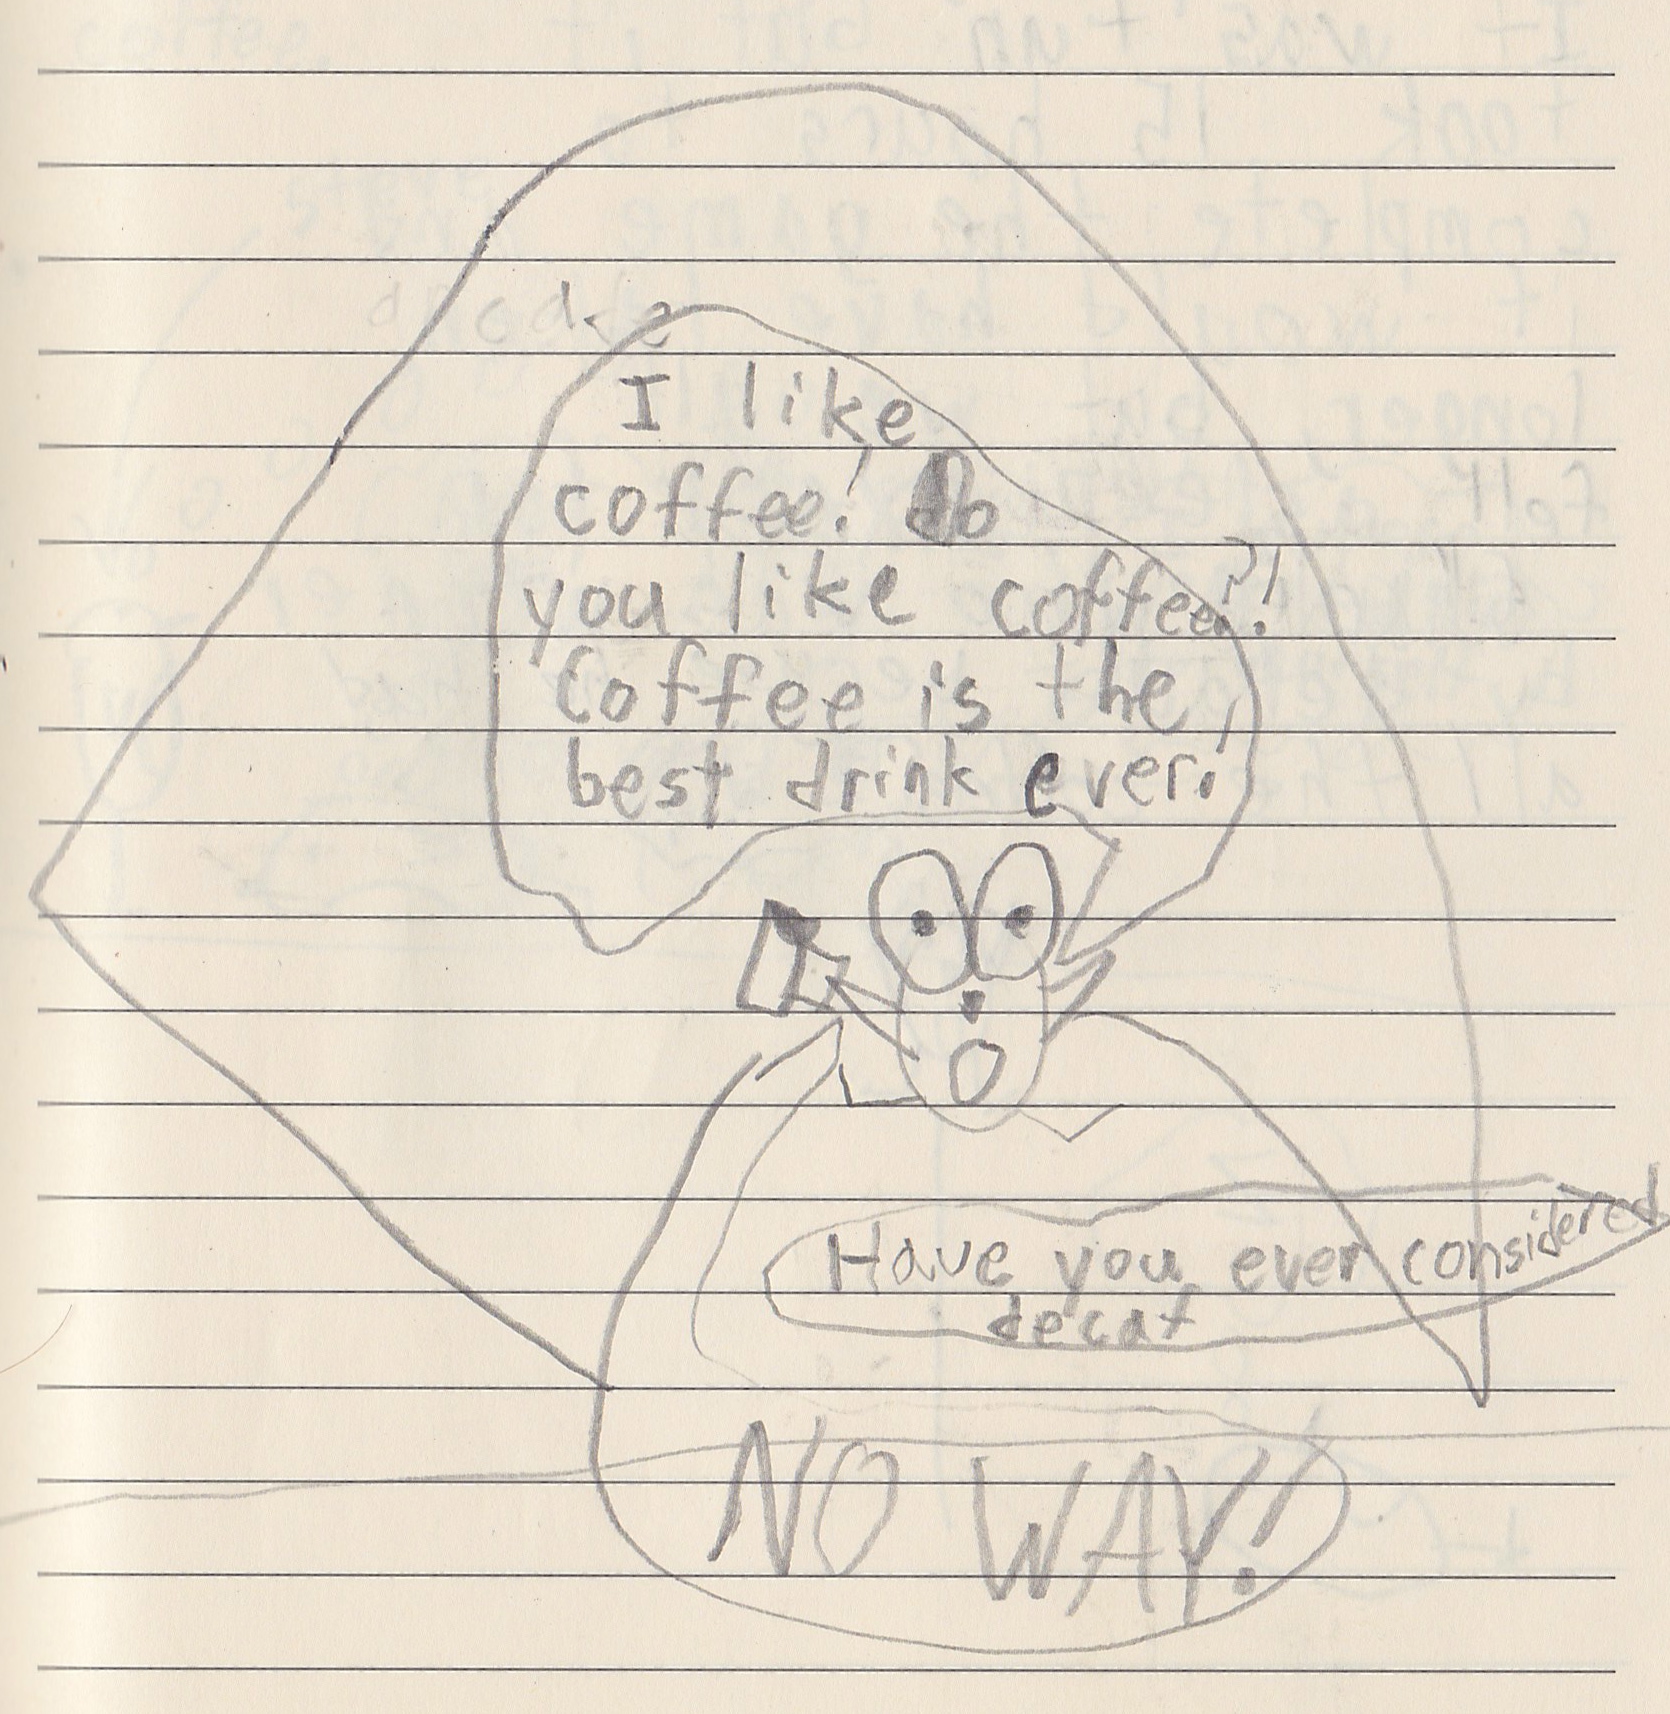 I like
coffee! Do
you like coffee?!
Coffee is the
best drink ever!
Have you ever considered
decaf
NO WAY!